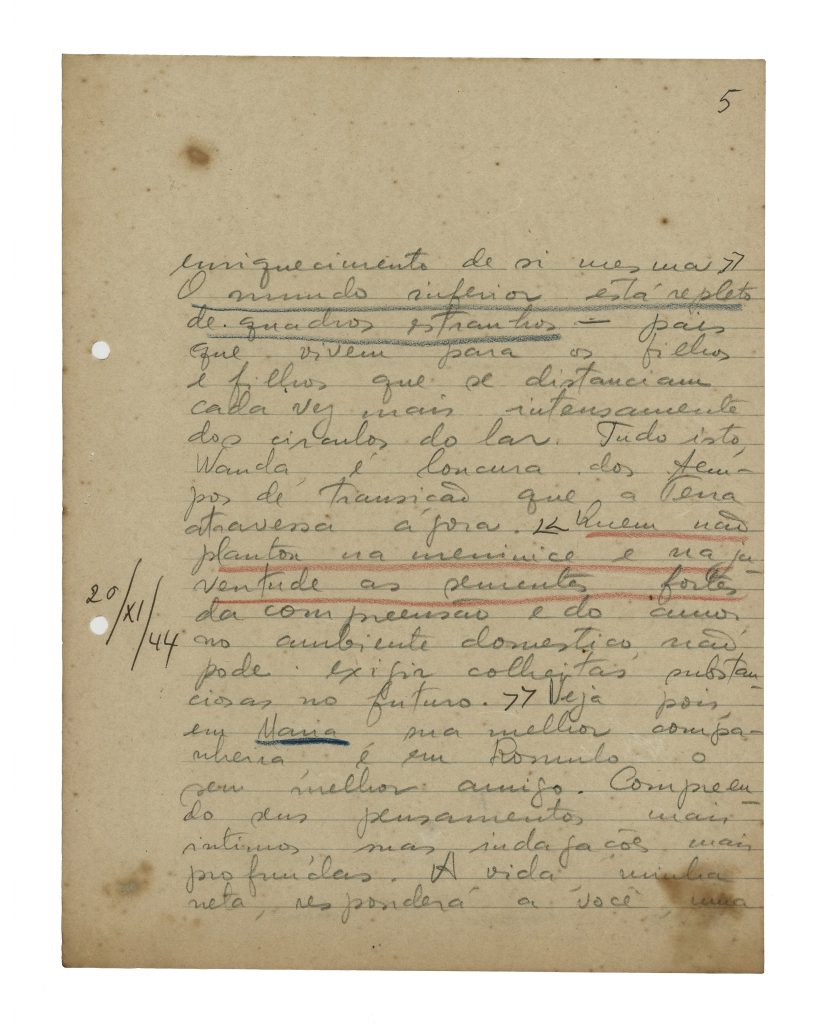 5
enriquecimento de si mesma >>
O mundo inferior está repleto
de quadros estranhos = pais
que vivem para os filhos
e filhos que se distanciam
cada vez mais intensamente
dos circulos do lar. Tudo isto,
Wanda, é loucura dos tem-
pos de transicão que a Terra
atravessa agora. << Quem não
plantou na meninice e na ju-
ventude as sementes fortes
da compreensão e do amor
no ambiente domestico, não
pode exigir colheitas substan-
ciosas no futuro. >> Veja pois,
em Maria sua melhor compa-
nheira é em Romulo o
seu melhor amigo. Compreen-
do seus pensamentos mais
intimos suas indagacões mais
profundas. A vida minha
neta, responderá a você, uma
20/XI/44